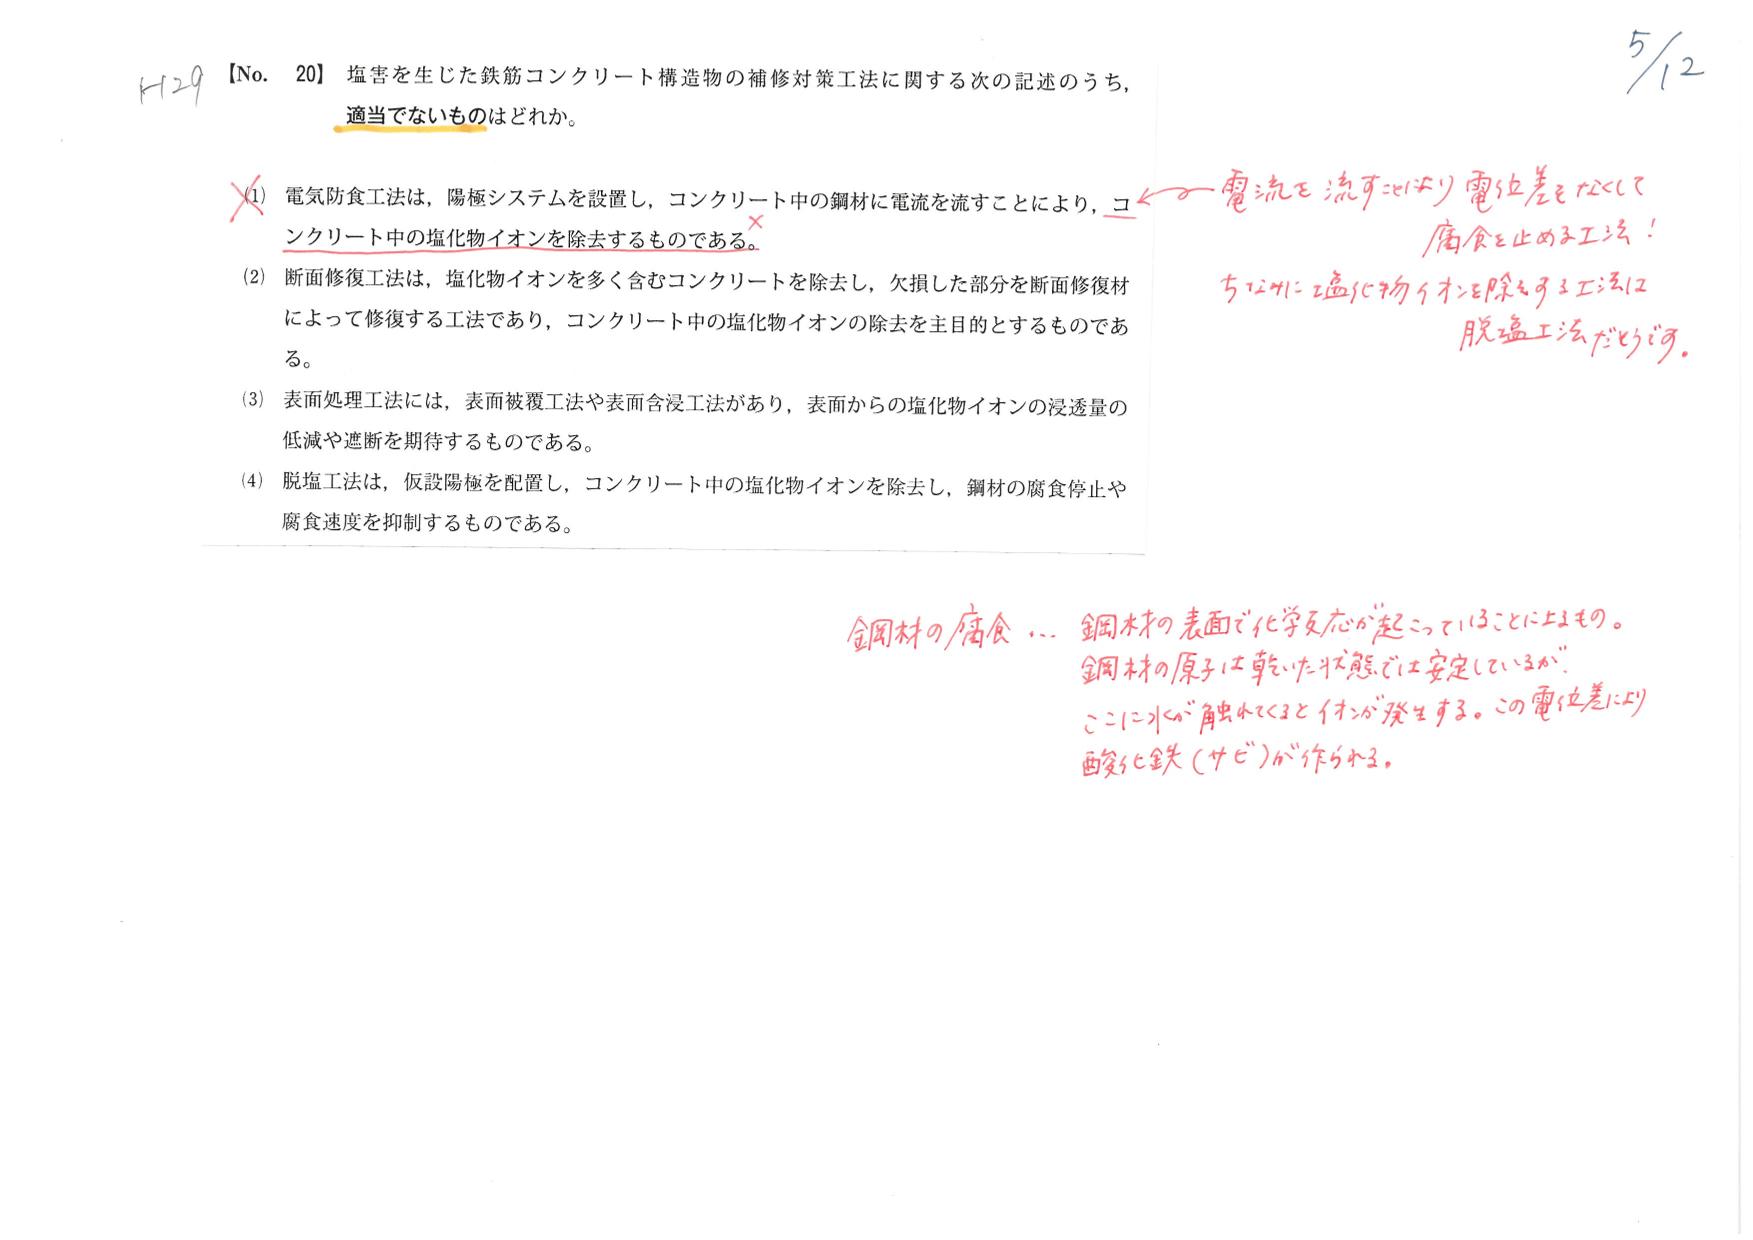 5/12
H29
【No. 20】 塩害を生じた鉄筋コンクリート構造物の補修対策工法に関する次の記述のうち，
適当でないものはどれか。
(1) 電気防食工法は，陽極システムを設置し，コンクリート中の鋼材に電流を流すことにより，コ
ンクリート中の塩化物イオンを除去するものである。
(2) 断面修復工法は，塩化物イオンを多く含むコンクリートを除去し，欠損した部分を断面修復材
によって修復する工法であり，コンクリート中の塩化物イオンの除去を主目的とするものであ
る。
(3) 表面処理工法には，表面被覆工法や表面含浸工法があり，表面からの塩化物イオンの浸透量の
低減や遮断を期待するものである。
(4) 脱塩工法は，仮設陽極を配置し，コンクリート中の塩化物イオンを除去し，鋼材の腐食停止や
腐食速度を抑制するものである。
電流を流すことにより電位差をなくして
腐食を止める工法！
ちなみに塩化物イオンを除去する工法は
脱塩工法だそうです。
鋼材の腐食… 鋼材の表面で化学反応が起こっていることによるもの。
鋼材の原子は乾いた状態では安定しているが
ここに水が触れてくるとイオンが発生する。この電位差により
酸化鉄（サビ）が作られる。